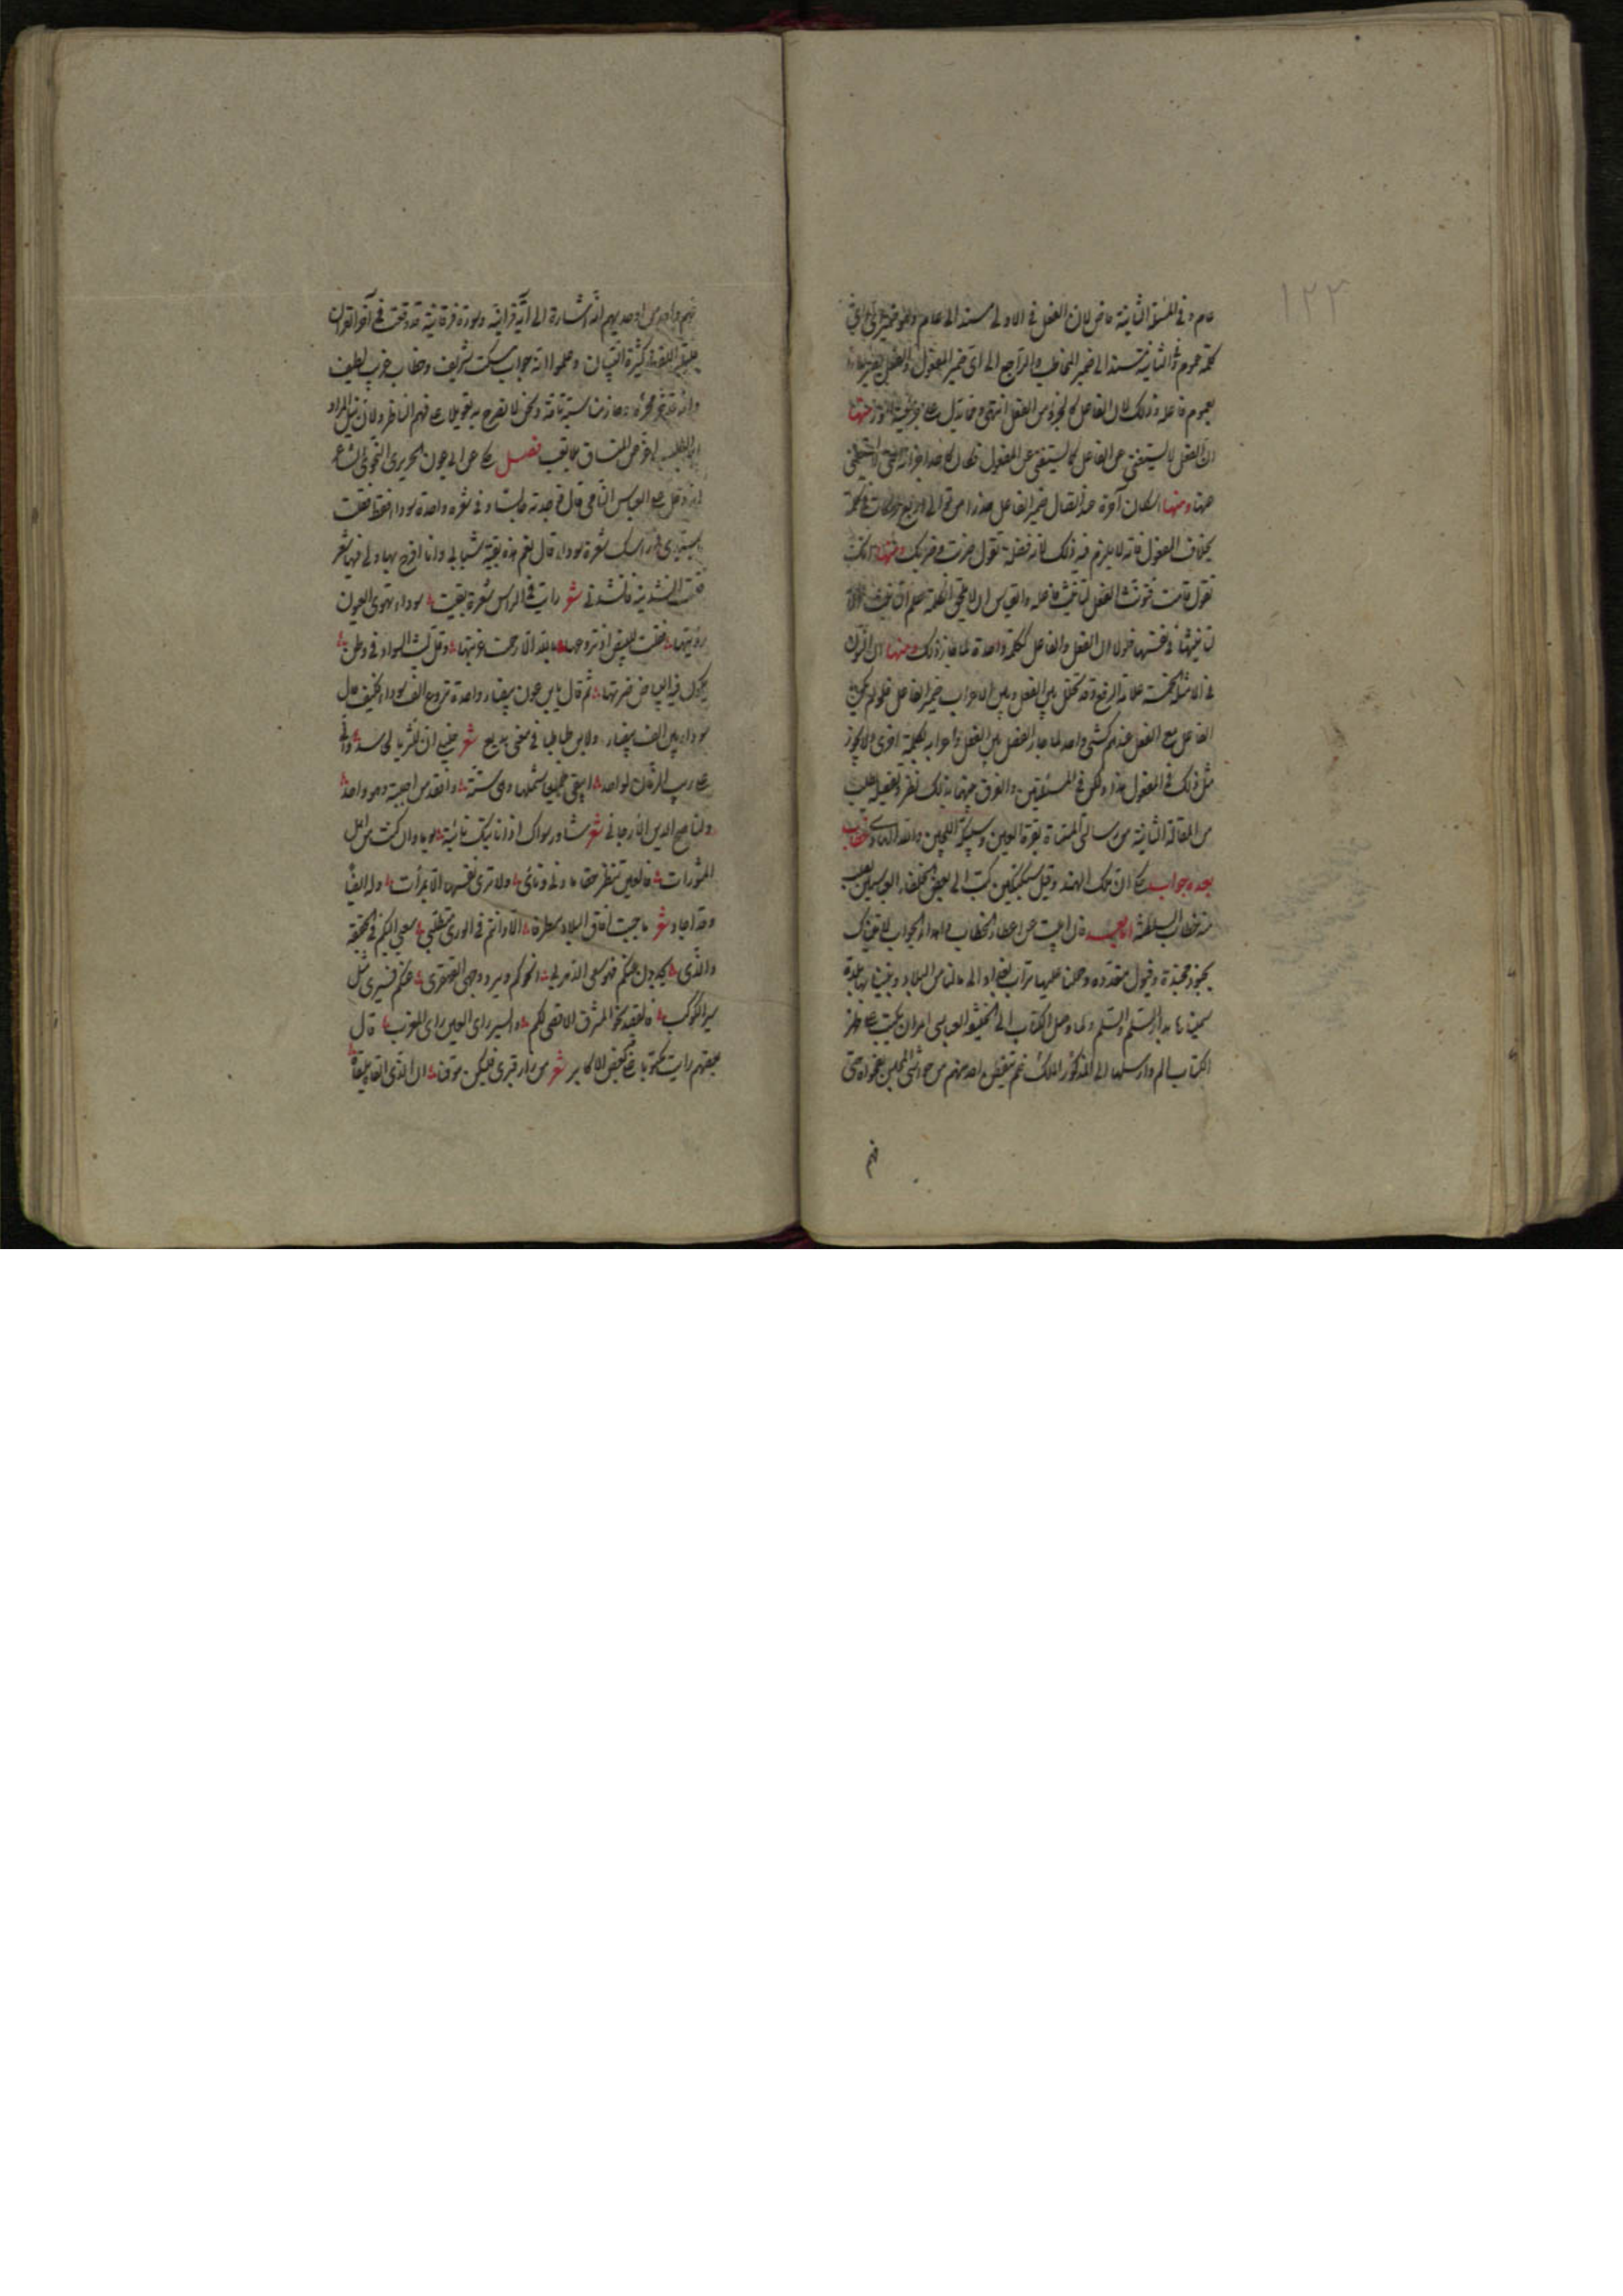 ١٢٣
عام وفي المسئلة الثانية خاص لان الفعل في الاولى مسند الى عام وهو ضمير اي واي
كلمة عموم وفي الثانية مسند الى ضمير المخاطب والراجع الى اي ضمير المفعول والفعل يصير عاما
بعموم فاعله وذلك لان الفاعل كالجزء من الفعل انتهى ومما يدل على جزئية امور منها
ان الفعل لا يستغني عن الفاعل كما يستغني عن المفعول فكان كاحد اجزائه التي لا يستغني
عنها ومنها اسكان آخره عند اتصال ضمير الفاعل حذرا من توالي اربع حركات في كلمة
بخلاف المفعول فانه لا يلزم فيه ذلك لانه فضلة تقول ضربت وضربك ومنها انك
تقول قامت فتونث الفعل لتانيث فاعله والقياس ان لا تلحق الكلمة علامة تانيث الا
لتانيثها في نفسها فلولا ان الفعل والفاعل ككلمة واحدة لما جاز ذلك ومنها ان النون
في الامثلة الخمسة علامة الرفع وقد تخلل بين الفعل وبين الاعراب ضمير الفاعل فلو لم يكن
الفاعل مع الفعل عندهم كشئ واحد لما جاز الفصل بين الفعل واعرابه بكلمة اخرى ولا يجوز
مثل ذلك في المفعول هذا ولكن في المسئلتين والفرق بينهما بذلك نظر وتفصيله يطلب
من المقالة الثانية من رسالتي المسماة بقرة العين وسبيكة اللجين والله الهادي خطاب
بعده جواب حكي ان ملك الهند وقيل سبكتكين كتب الى بعض الخلفاء العباسيين يطلب
منه خطاب السلطنة فان ابيت عن اعطاء الخطاب واهداء الجواب لاتينك
بجنود مجندة وفيول متعددة وحملنا عليها تراب بغداد الى ما لنا من البلاد وبنينا بها بلدة
سميناها بدار السلم والسلم ولما وصل الكتاب الى الخليفة العباسي امر ان يكتب على ظهر
الكتاب الم وارسلها الى المذكور الملك فلم يتفطن احد منهم من حواشي المجلس بفحواه حتى
فهم
فهم واحد من اوحديهم انه اشارة الى آية قرآنية وسورة فرقانية قد وقعت في آخر القران
كثيرة التبيان وعلموا انه جواب مسكت شريف وخطاب غريب لطيف
ونحن لا نصرح به تعويلا على فهم الناظر ولان نيل المراد
فصل حكي عن ابي عون الحريري النحوي الشاعر
انه دخل على ابو العباس النامي قال فوجدته جالسا وفي شعره واحدة سوداء فقط فقلت
يا سيدي في راسك شعرة سوداء قال نعم هذه بقية شبابي وانا افرح بها ولي فيها شعر
فقلت انشدنيه فانشدني شعر رايت في الراس شعرة بقيت سوداء تهوى العيون
رؤيتها فقلت للبيض اذ تروعها بالله الا رحمت غربتها وقل لبث السواد في وطن
يكون فيه البياض ضرتها ثم قال يا ابن عون بيضاء واحدة تروع الف سوداء فكيف حال
سوداء بين الف بيضاء ولابن طباطبا في معنى بديع شعر خليلي اني للثريا لحاسد واني
على ريب الزمان لواجد ايبقى جميعا شملها وهي ستة وافقد من احببته وهو واحد
ولناصح الدين الارجاني شعر شاور سواك اذا نابتك نائبة يوما وان كنت من اهل
المشورات فالعين تنظر منها ما دنى ونأى ولا ترى نفسها الا بمرآت وله ايضا
وقد اجاد شعر ما جبت افاق البلاد مطوفا الا وانتم في الورى متطلبي سعيي اليكم في الحقيقة
والذي تجدون عنكم فهو سعي الدهر بي انحوكم ويرد وجهي القهقرى عنكم فسيري مثل
سير الكوكب فالقصد نحو المشرق الاقصى لكم والسير راي العين راي المغرب قال
بعضهم رايت مكتوبا على قبر لبعض الاكابر شعر من زار قبري فليكن موقنا ان الذي القاه يلقاه